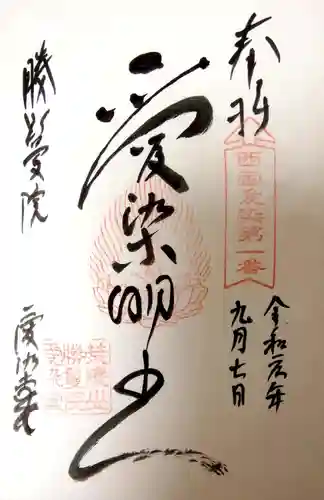 奉拝
西國愛染第一番
令和元年
九月七日
愛染明王
勝鬘院
愛染堂